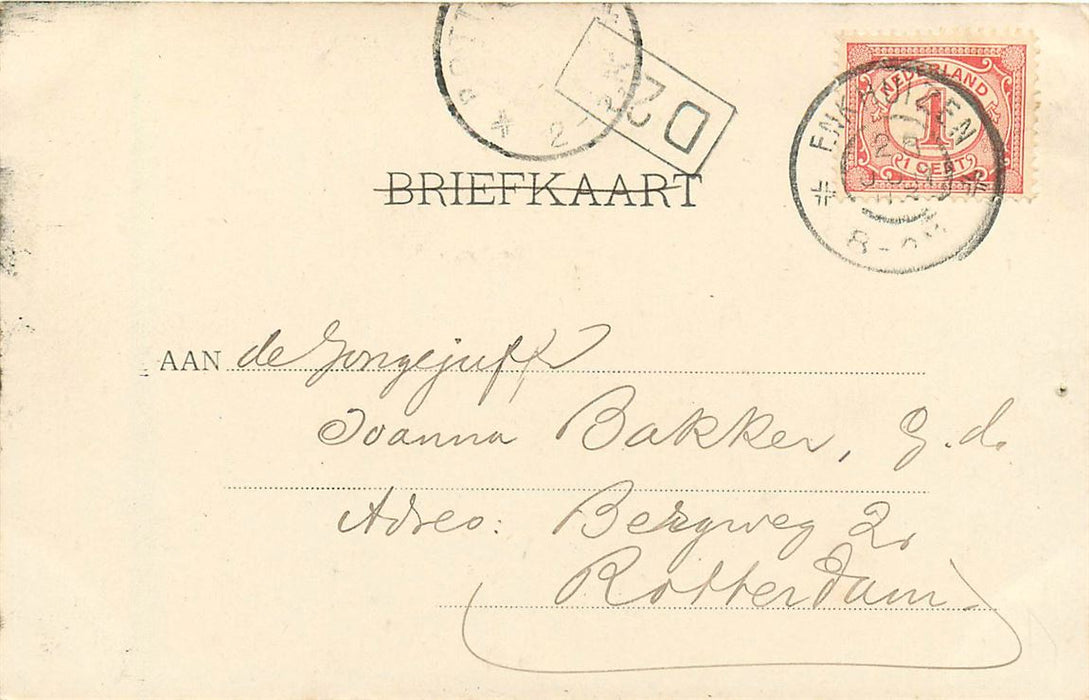 ROTT
2-
D2
NEDERLAND
1
1 CENT
ENKHUIZEN
BRIEFKAART
AAN de Jongejuffr
Joanna Bakker, G. d.
Adres: Bergweg 2.
Rotterdam